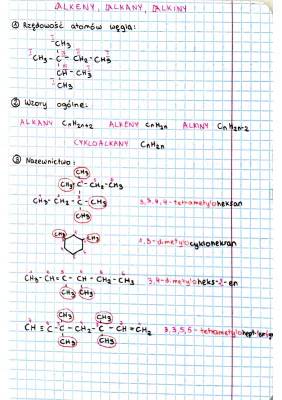 ALKENY, ALKANY, ALKINY
① Rzędowość atomów węgla:
I CH₃
CH₃ - C - CH₂ - CH₃
CH - CH₃
CH₃
② Wzory ogólne:
ALKANY CnH2n+2 ALKENY CnH2n ALKINY CnH2n-2
CYKLOALKANY CnH2n
③ Nazewnictwo:
CH₃
CH₃ - C - CH₂ - CH₃
CH₃ - CH₂ - C - CH₃
CH₃
3,3,4,4-tetrametyloheksan
CH₃ CH₃
1,3-dimetylocykloheksan
CH₃ - CH = C - CH - CH₂ - CH₃
CH₃ CH₃
3,4-dimetyloheks-2-en
CH₃ CH₃
CH ≡ C - C - CH₂ - C - CH = CH₂
CH₃ CH₃
3,3,5,5-tetrametylohept